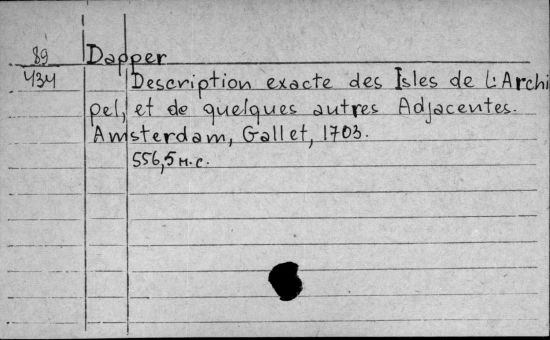 89 Dapper
434 Description exacte des Isles de L'Archi
pel, et de quelques autres Adjacentes.
Amsterdam, Gallet, 1703.
556,5 н.с.